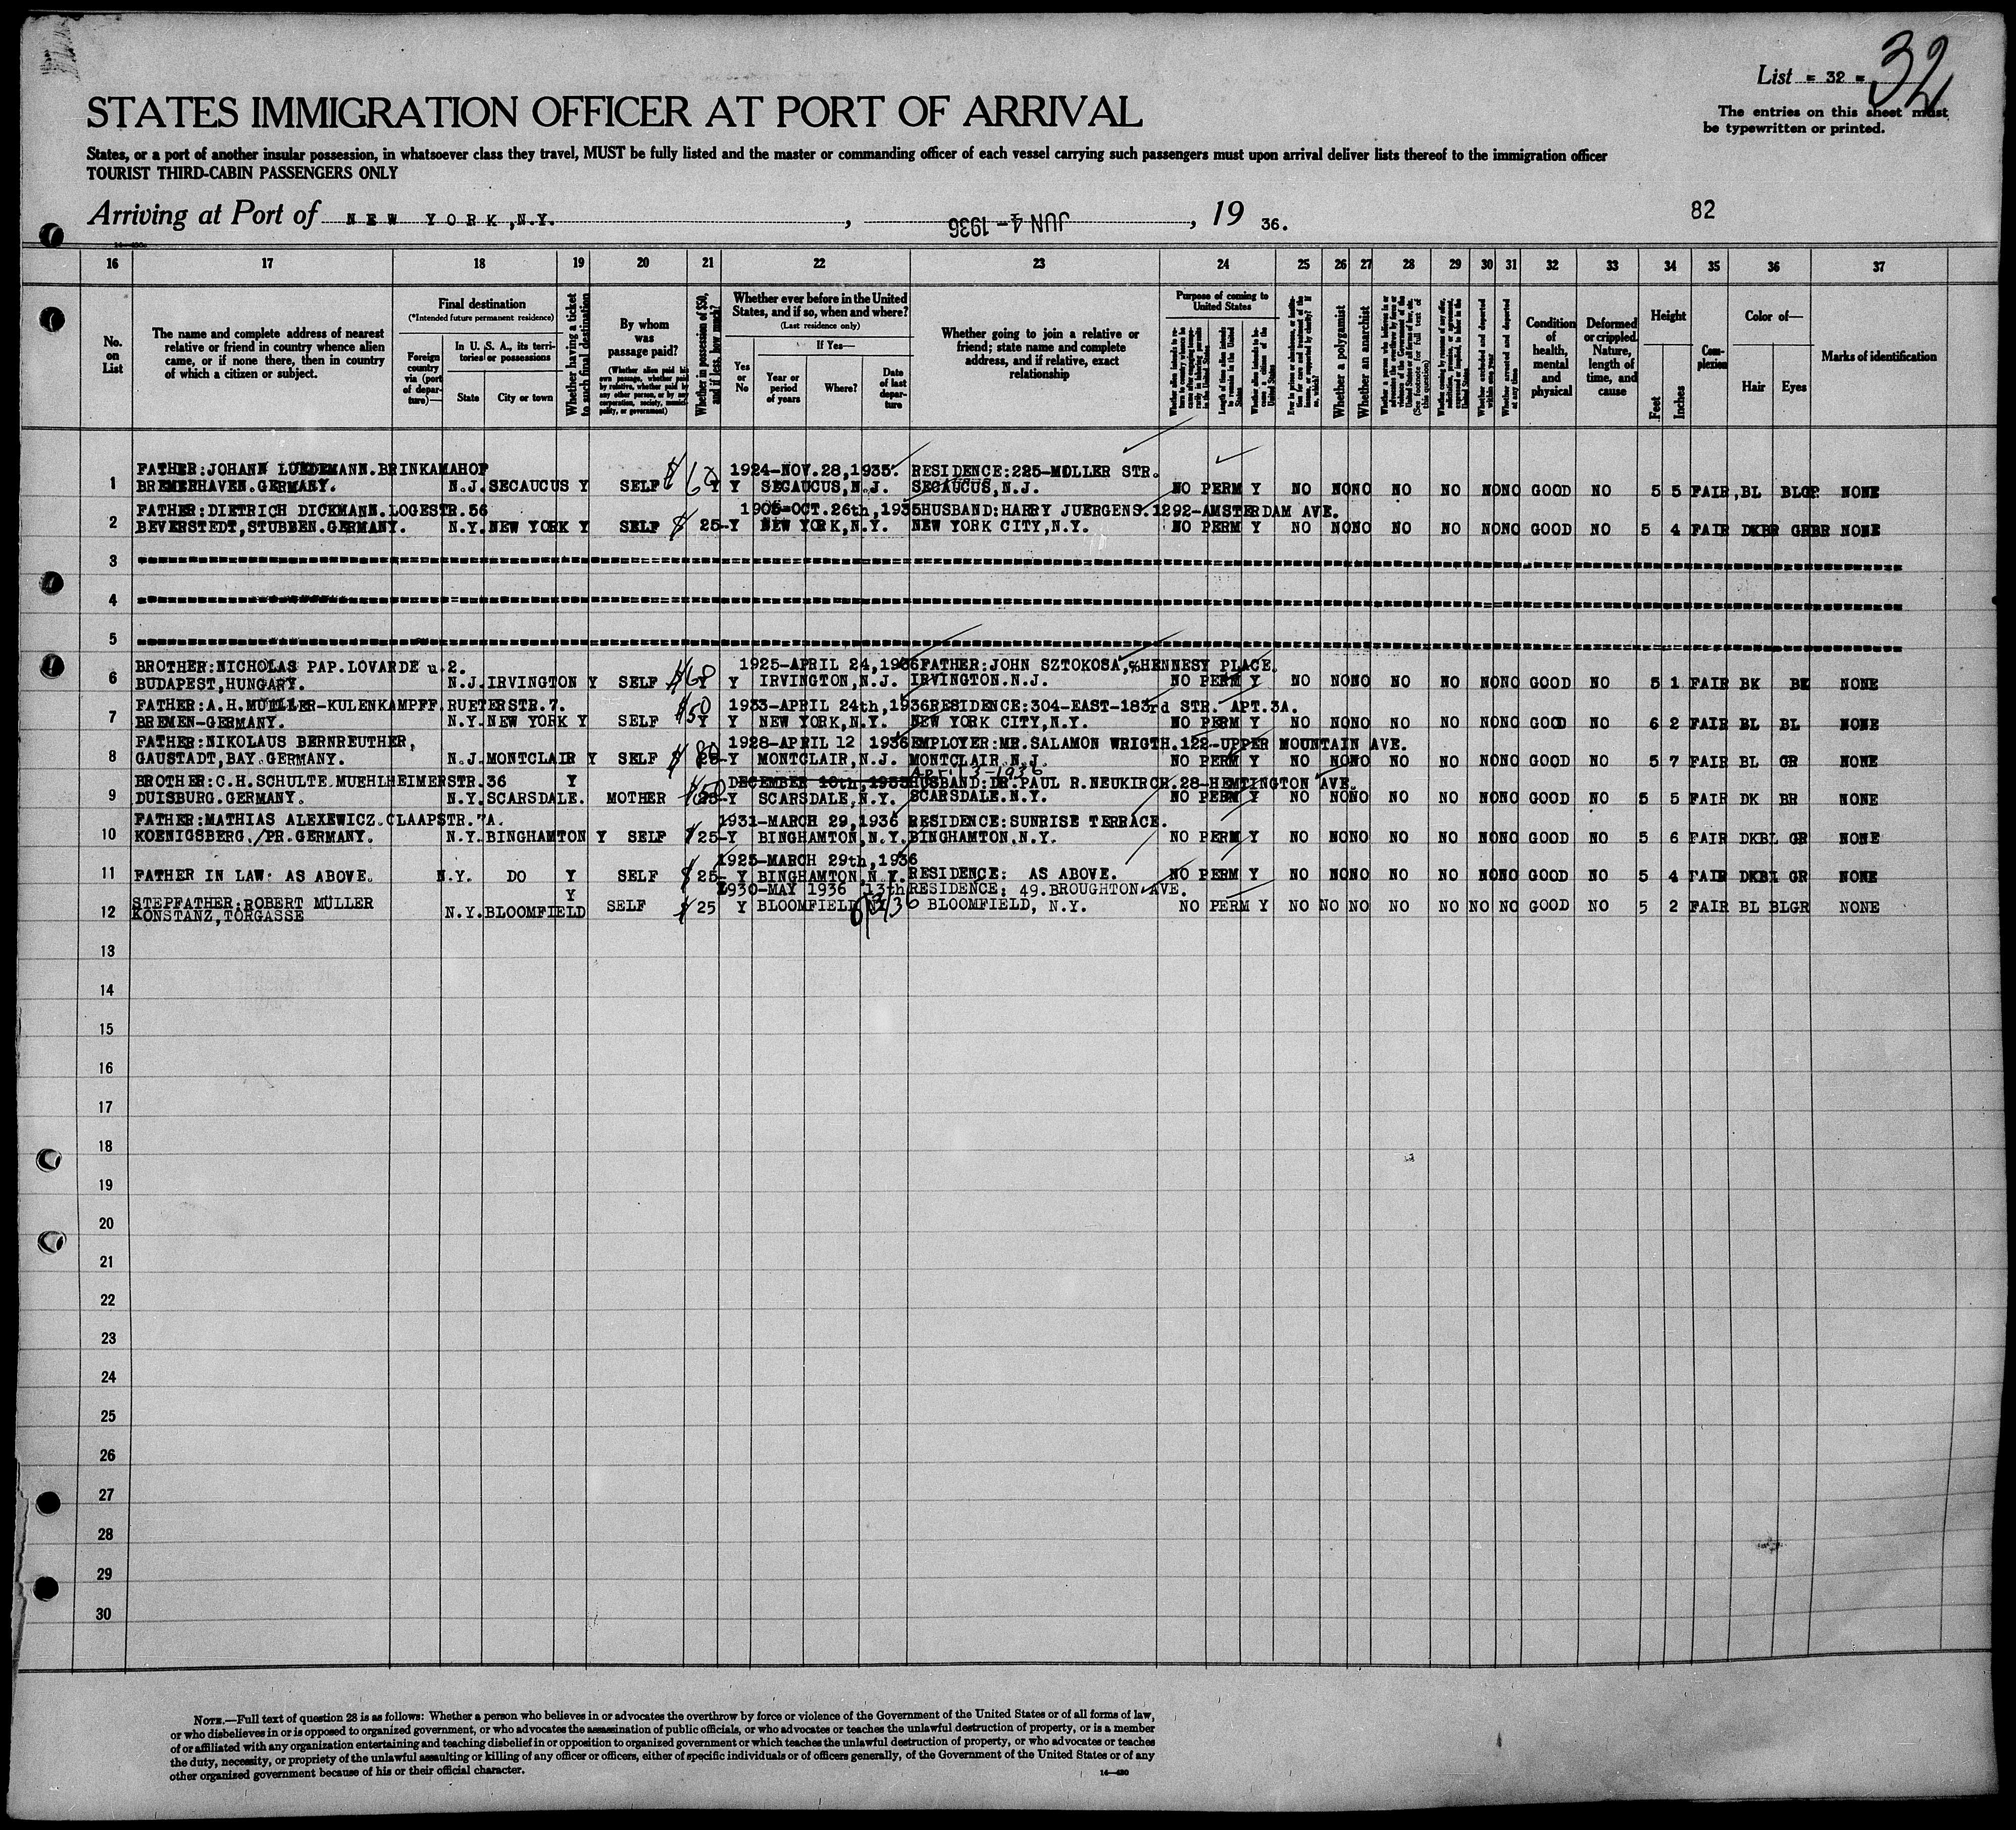 List = 32 = 32
The entries on this sheet must
be typewritten or printed.
STATES IMMIGRATION OFFICER AT PORT OF ARRIVAL
States, or a port of another insular possession, in whatsoever class they travel, MUST be fully listed and the master or commanding officer of each vessel carrying such passengers must upon arrival deliver lists thereof to the immigration officer
TOURIST THIRD-CABIN PASSENGERS ONLY
Arriving at Port of NEW YORK, N.Y. , JUN 4 - 1936 , 19 36.
82
16 17 18 19 20 21 22 23 24 25 26 27 28 29 30 31 32 33 34 35 36 37
No. on List
The name and complete address of nearest relative or friend in country whence alien came, or if none there, then in country of which a citizen or subject.
Final destination
(*Intended future permanent residence)
Foreign country via (port of departure)—
In U. S. A., its territories or possessions
State
City or town
Whether having a ticket to such final destination
By whom was passage paid?
(Whether alien paid his own passage, whether paid by relative, whether paid by any other person, or by any corporation, society, municipality, or government)
Whether in possession of $50, and if less, how much?
Whether ever before in the United States, and if so, when and where?
(Last residence only)
Yes or No
If Yes—
Year or period of years
Where?
Date of last departure
Whether going to join a relative or friend; state name and complete address, and if relative, exact relationship
Purpose of coming to United States
Length of time alien intends to remain in the United States
Whether alien intends to become a citizen of the United States
Whether a polygamist
Whether an anarchist
(See footnote for full text of this question)
Whether arrested and deported at any time
Condition of health, mental and physical
Deformed or crippled. Nature, length of time, and cause
Height
Feet
Inches
Complexion
Color of—
Hair
Eyes
Marks of identification
FATHER:JOHANN LUEDEMANN.BRINKAMAHOF 1924-NOV.28,1935. RESIDENCE:225-MOLLER STR.
1 BREMERHAVEN.GERMANY. N.J. SECAUCUS Y SELF $ Y Y SECAUCUS,N.J. SECAUCUS,N.J. NO PERM Y NO NO NO NO NO NO NO GOOD NO 5 5 FAIR BL BLGR NONE
FATHER:DIETRICH DICKMANN.LOGESTR.56 1905-OCT.26th,1935 HUSBAND:HARRY JUERGENS.1292-AMSTERDAM AVE.
2 BEVERSTEDT,STUBBEN.GERMANY. N.Y. NEW YORK Y SELF $ 25- Y NEW YORK,N.Y. NEW YORK CITY,N.Y. NO PERM Y NO NO NO NO NO NO NO GOOD NO 5 4 FAIR DKBR GRBR NONE
3
4
5
BROTHER:NICHOLAS PAP.LOVARDE u.2. 1925-APRIL 24,1936 FATHER:JOHN SZTOKOSA,%HENNESY PLACE.
6 BUDAPEST,HUNGARY. N.J. IRVINGTON Y SELF $ 60 Y Y IRVINGTON,N.J. IRVINGTON.N.J. NO PERM Y NO NO NO NO NO NO NO GOOD NO 5 1 FAIR BK BK NONE
FATHER:A.H.MUELLER-KULENKAMPFF.RUETERSTR.7. 1933-APRIL 24th,1936 RESIDENCE:304-EAST-183rd STR. APT.3A.
7 BREMEN-GERMANY. N.Y. NEW YORK Y SELF $50 Y Y NEW YORK,N.Y. NEW YORK CITY,N.Y. NO PERM Y NO NO NO NO NO NO NO GOOD NO 6 2 FAIR BL BL NONE
FATHER:NIKOLAUS BERNREUTHER, 1928-APRIL 12 1936 EMPLOYER:MR.SALAMON WRIGTH.122-UPPER MOUNTAIN AVE.
8 GAUSTADT,BAY.GERMANY. N.J. MONTCLAIR Y SELF $ 80 25- Y MONTCLAIR,N.J. MONTCLAIR N.J. NO PERM Y NO NO NO NO NO NO NO GOOD NO 5 7 FAIR BL GR NONE
April 3-1936
BROTHER:C.H.SCHULTE.MUEHLHEIMERSTR.36 Y DECEMBER 10th,1935 HUSBAND:DR.PAUL R.NEUKIRCH.28-HEMTINGTON AVE.
9 DUISBURG.GERMANY. N.Y. SCARSDALE. MOTHER $50 25- Y SCARSDALE,N.Y. SCARSDALE.N.Y. NO PERM Y NO NO NO NO NO NO NO GOOD NO 5 5 FAIR DK BR NONE
FATHER:MATHIAS ALEXEWICZ.CLAAPSTR.7A. 1931-MARCH 29,1936 RESIDENCE:SUNRISE TERRACE.
10 KOENIGSBERG./PR.GERMANY. N.Y. BINGHAMTON Y SELF $ 25- Y BINGHAMTON,N.Y. BINGHAMTON.N.Y. NO PERM Y NO NO NO NO NO NO NO GOOD NO 5 6 FAIR DKBL GR NONE
1925-MARCH 29th,1936
11 FATHER IN LAW: AS ABOVE. N.Y. DO Y SELF $ 25- Y BINGHAMTON,N.Y. RESIDENCE: AS ABOVE. NO PERM Y NO NO NO NO NO NO NO GOOD NO 5 4 FAIR DKBL GR NONE
Y 1930-MAY 1936 13th RESIDENCE: 49.BROUGHTON AVE.
STEPFATHER:ROBERT MÜLLER
12 KONSTANZ,TORGASSE N.Y. BLOOMFIELD SELF $ 25 Y BLOOMFIELD BLOOMFIELD, N.Y. NO PERM Y NO NO NO NO NO NO NO GOOD NO 5 2 FAIR BL BLGR NONE
13
14
15
16
17
18
19
20
21
22
23
24
25
26
27
28
29
30
NOTE.—Full text of question 28 is as follows: Whether a person who believes in or advocates the overthrow by force or violence of the Government of the United States or of all forms of law,
or who disbelieves in or is opposed to organized government, or who advocates the assassination of public officials, or who advocates or teaches the unlawful destruction of property, or is a member
of or affiliated with any organization entertaining and teaching disbelief in or opposition to organized government or which teaches the unlawful destruction of property, or who advocates or teaches
the duty, necessity, or propriety of the unlawful assaulting or killing of any officer or officers, either of specific individuals or of officers generally, of the Government of the United States or of any
other organized government because of his or their official character.
14—430